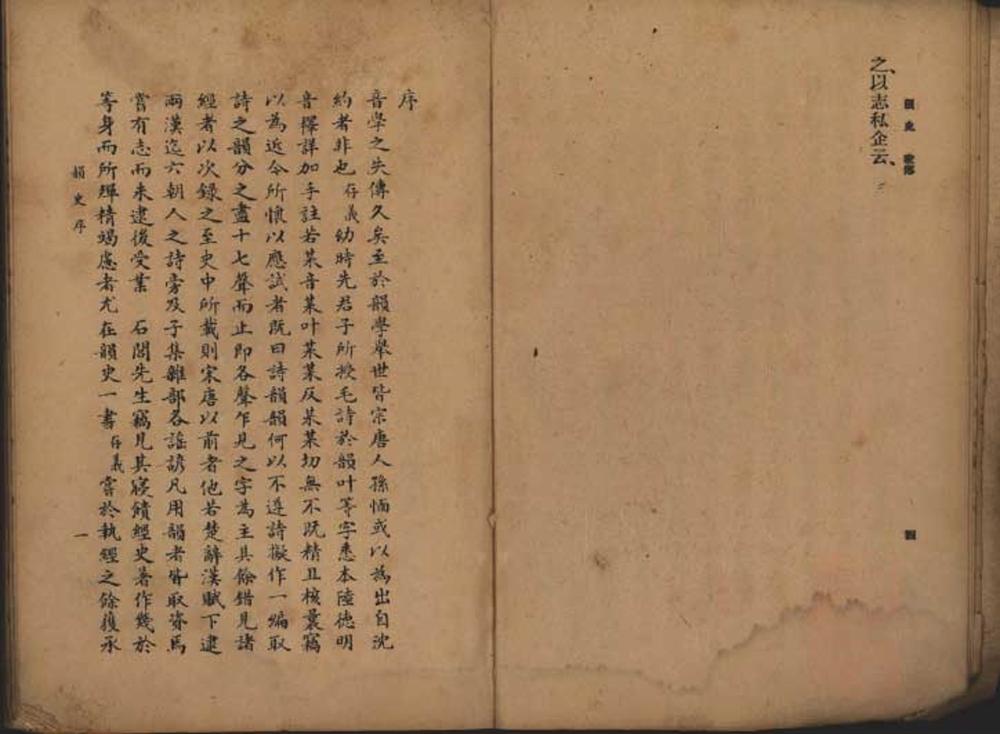 之、以志私企云、
韻史
四
序
音學之失傳久矣至於韻學舉世皆宗唐人孫愐或以為出自沈
約者非也存義幼時先君子所授毛詩於韻叶等字悉本陸德明
音擇詳加手註若某音某叶某某反某某切無不既精且核曩竊
以為近今所懷以應試者既曰詩韻韻何以不遵詩擬作一編取
詩之韻分之盡十七聲而止即各聲乍見之字為主其餘錯見諸
經者以次錄之至史中所載則宋唐以前者他若楚辭漢賦下逮
兩漢迄六朝人之詩旁及子集雜部各謠諺凡用韻者皆取資焉
嘗有志而未逮後受業 石閭先生竊見其寢饋經史著作幾於
等身而所殫精竭慮者尤在韻史一書存義嘗於執經之餘獲承
韻史序
一